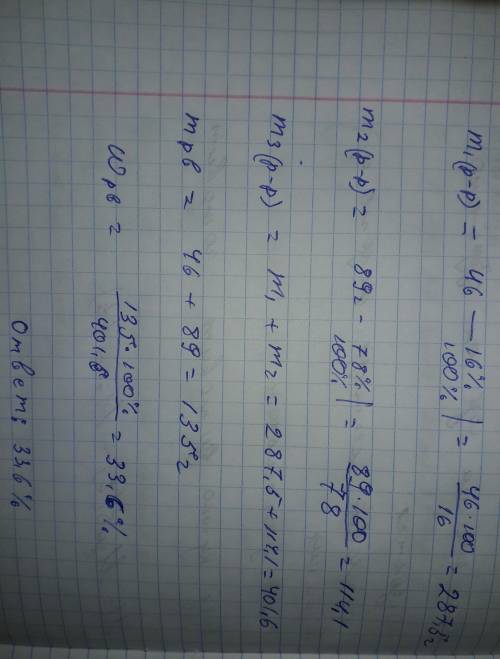 m₁(р-р) = 46 — 16% | 100% | = 46·100 / 16 = 287,5г
m₂(р-р) = 89г - 78% | 100% | = 89·100 / 78 = 114,1
m₃(р-р) = m₁ + m₂ = 287,5 + 114,1 = 401,6
mрв = 46 + 89 = 135г
Wрв = 135·100% / 401,6 = 33,6%
Ответ: 33,6%